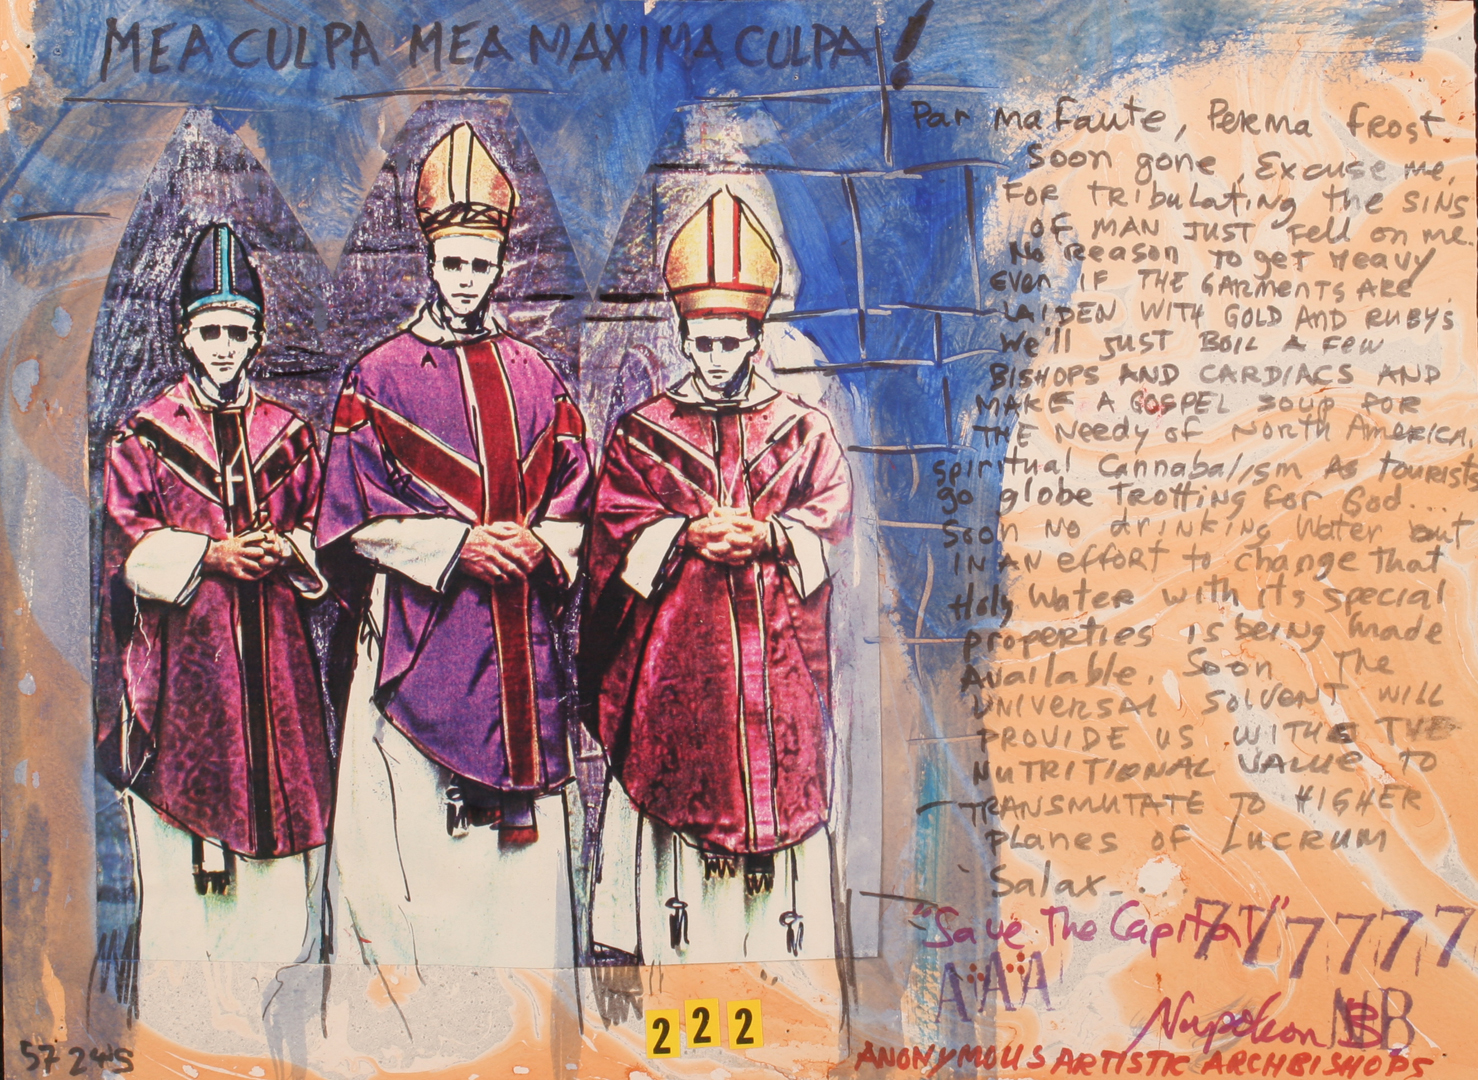 MEA CULPA MEA MAXIMA CULPA!
Par ma Faute, Perma frost
Soon gone, Excuse me,
For Tribulating the SINS
OF MAN JUST Fell on me..
No Reason to get Heavy
Even IF THE GARMENTS ARE
LAIDEN WITH GOLD AND RUBYS
We'll JUST BOIL A FEW
BISHOPS AND CARDIACS AND
MAKE A GOSPEL SOUP FOR
THE Needy of NORTH AMERICA,
spiritual Cannabalism As tourists
go globe Trotting for God...
Soon No drinking Water but
IN AN effort to change That
Holy Water with its special
properties is being made
Available. Soon The
UNIVERSAL SOLVENT WILL
PROVIDE US WITH THE
NUTRITIONAL VALUE TO
TRANSMUTATE TO HIGHER
Planes of LUCRUM
Salax....
"Save The Capital"
7777777
ÄÄÄ
Napoleon NB
222
ANONYMOUS ARTISTIC ARCHBISHOPS